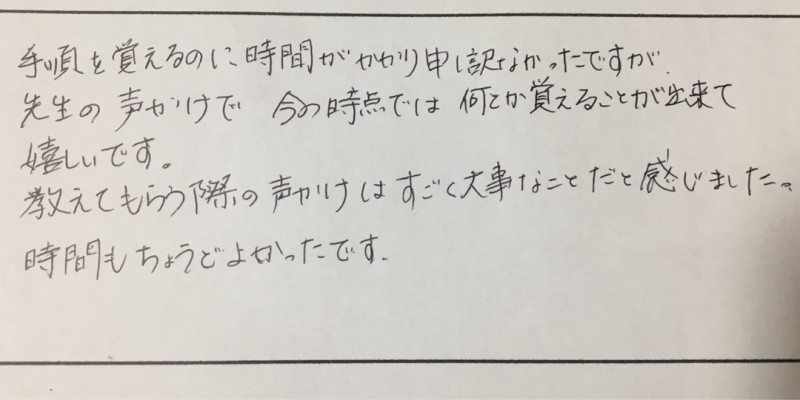 手順を覚えるのに、時間がかかり申し訳なかったですが、
先生の声かけで 今の時点では 何とか覚えることが出来て
嬉しいです。
教えてもらう際の声かけはすごく大事なことだと感じました。
時間もちょうどよかったです。